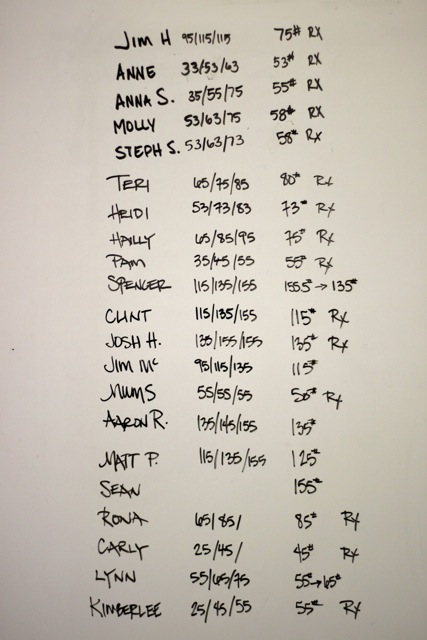 JIM H 95/115/115 75# RX
ANNE 33/53/63 53# RX
ANNA S. 35/55/75 55# RX
MOLLY 53/63/75 58# RX
STEPH S. 53/63/73 58# RX
TERI 65/75/85 80# RX
HEIDI 53/73/83 73# RX
HAILLY 65/85/95 75# RX
PAM 35/45/55 55# RX
SPENCER 115/135/155 155# → 135#
CLINT 115/135/155 115# RX
JOSH H. 135/155/155 135# RX
JIM Mc 95/115/135 115#
MUMS 55/55/55 50# RX
AARON R. 135/145/155 135#
MATT P. 115/135/155 125#
SEAN 155#
RONA 65/85/ 85# RX
CARLY 25/45/ 45# RX
LYNN 55/65/75 55# → 65#
KIMBERLEE 25/45/55 55# RX